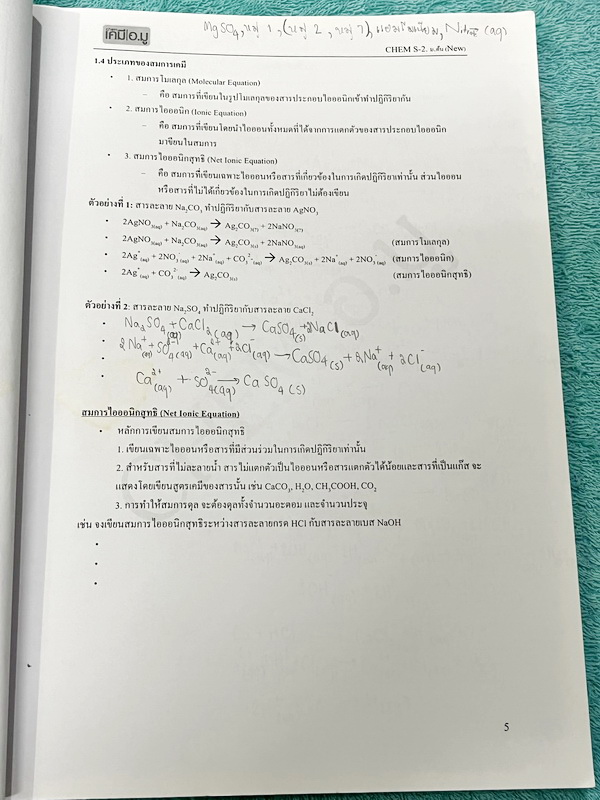 MgSO₄, หมู่ 1, (หมู่ 2, หมู่ 7), แอมโมเนียม, (aq)
เคมี อ.มู
CHEM S-2. ม.ต้น (New)
1.4 ประเภทของสมการเคมี
• 1. สมการโมเลกุล (Molecular Equation)
– คือ สมการที่เขียนในรูปโมเลกุลของสารประกอบไอออนิกเข้าทำปฏิกิริยากัน
• 2. สมการไอออนิก (Ionic Equation)
– คือ สมการที่เขียนโดยนำไอออนทั้งหมดที่ได้จากการแตกตัวของสารประกอบไอออนิก
มาเขียนในสมการ
• 3. สมการไอออนิกสุทธิ (Net Ionic Equation)
– คือ สมการที่เขียนเฉพาะไอออนหรือสารที่เกี่ยวข้องในการเกิดปฏิกิริยาเท่านั้น ส่วนไอออน
หรือสารที่ไม่ได้เกี่ยวข้องในการเกิดปฏิกิริยาไม่ต้องเขียน
ตัวอย่างที่ 1: สารละลาย Na₂CO₃ ทำปฏิกิริยากับสารละลาย AgNO₃
• 2AgNO₃(aq) + Na₂CO₃(aq) → Ag₂CO₃(?) + 2NaNO₃(?)
• 2AgNO₃(aq) + Na₂CO₃(aq) → Ag₂CO₃(s) + 2NaNO₃(aq) (สมการโมเลกุล)
• 2Ag⁺(aq) + 2NO₃⁻(aq) + 2Na⁺(aq) + CO₃²⁻(aq) → Ag₂CO₃(s) + 2Na⁺(aq) + 2NO₃⁻(aq) (สมการไอออนิก)
• 2Ag⁺(aq) + CO₃²⁻(aq) → Ag₂CO₃(s) (สมการไอออนิกสุทธิ)
ตัวอย่างที่ 2: สารละลาย Na₂SO₄ ทำปฏิกิริยากับสารละลาย CaCl₂
• Na₂SO₄(aq) + CaCl₂(aq) → CaSO₄(s) + 2NaCl(aq)
• 2Na⁺(aq) + SO₄²⁻(aq) + Ca²⁺(aq) + 2Cl⁻(aq) → CaSO₄(s) + 2Na⁺(aq) + 2Cl⁻(aq)
• Ca²⁺(aq) + SO₄²⁻(aq) → CaSO₄(s)
สมการไอออนิกสุทธิ (Net Ionic Equation)
• หลักการเขียนสมการไอออนิกสุทธิ
1. เขียนเฉพาะไอออนหรือสารที่มีส่วนร่วมในการเกิดปฏิกิริยาเท่านั้น
2. สำหรับสารที่ไม่ละลายน้ำ สารไม่แตกตัวเป็นไอออนหรือสารแตกตัวได้น้อยและสารที่เป็นแก๊ส จะ
แสดงโดยเขียนสูตรเคมีของสารนั้น เช่น CaCO₃, H₂O, CH₃COOH, CO₂
3. การทำให้สมการดุล จะต้องดุลทั้งจำนวนอะตอม และจำนวนประจุ
เช่น จงเขียนสมการไอออนิกสุทธิระหว่างสารละลายกรด HCl กับสารละลายเบส NaOH
5